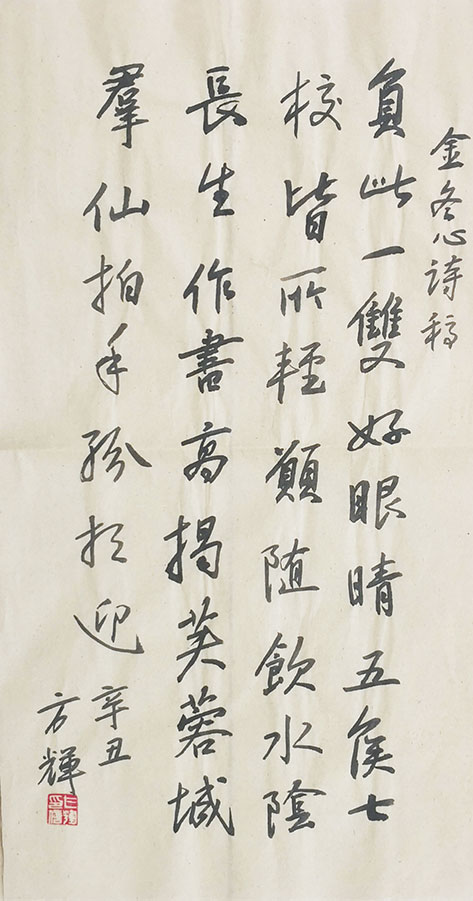 金冬心詩稿
負此一雙好眼晴五侯七
校皆所輕願随飲水陰
長生作書高揭芙蓉城
羣仙拍手紛相迎
辛丑
方輝